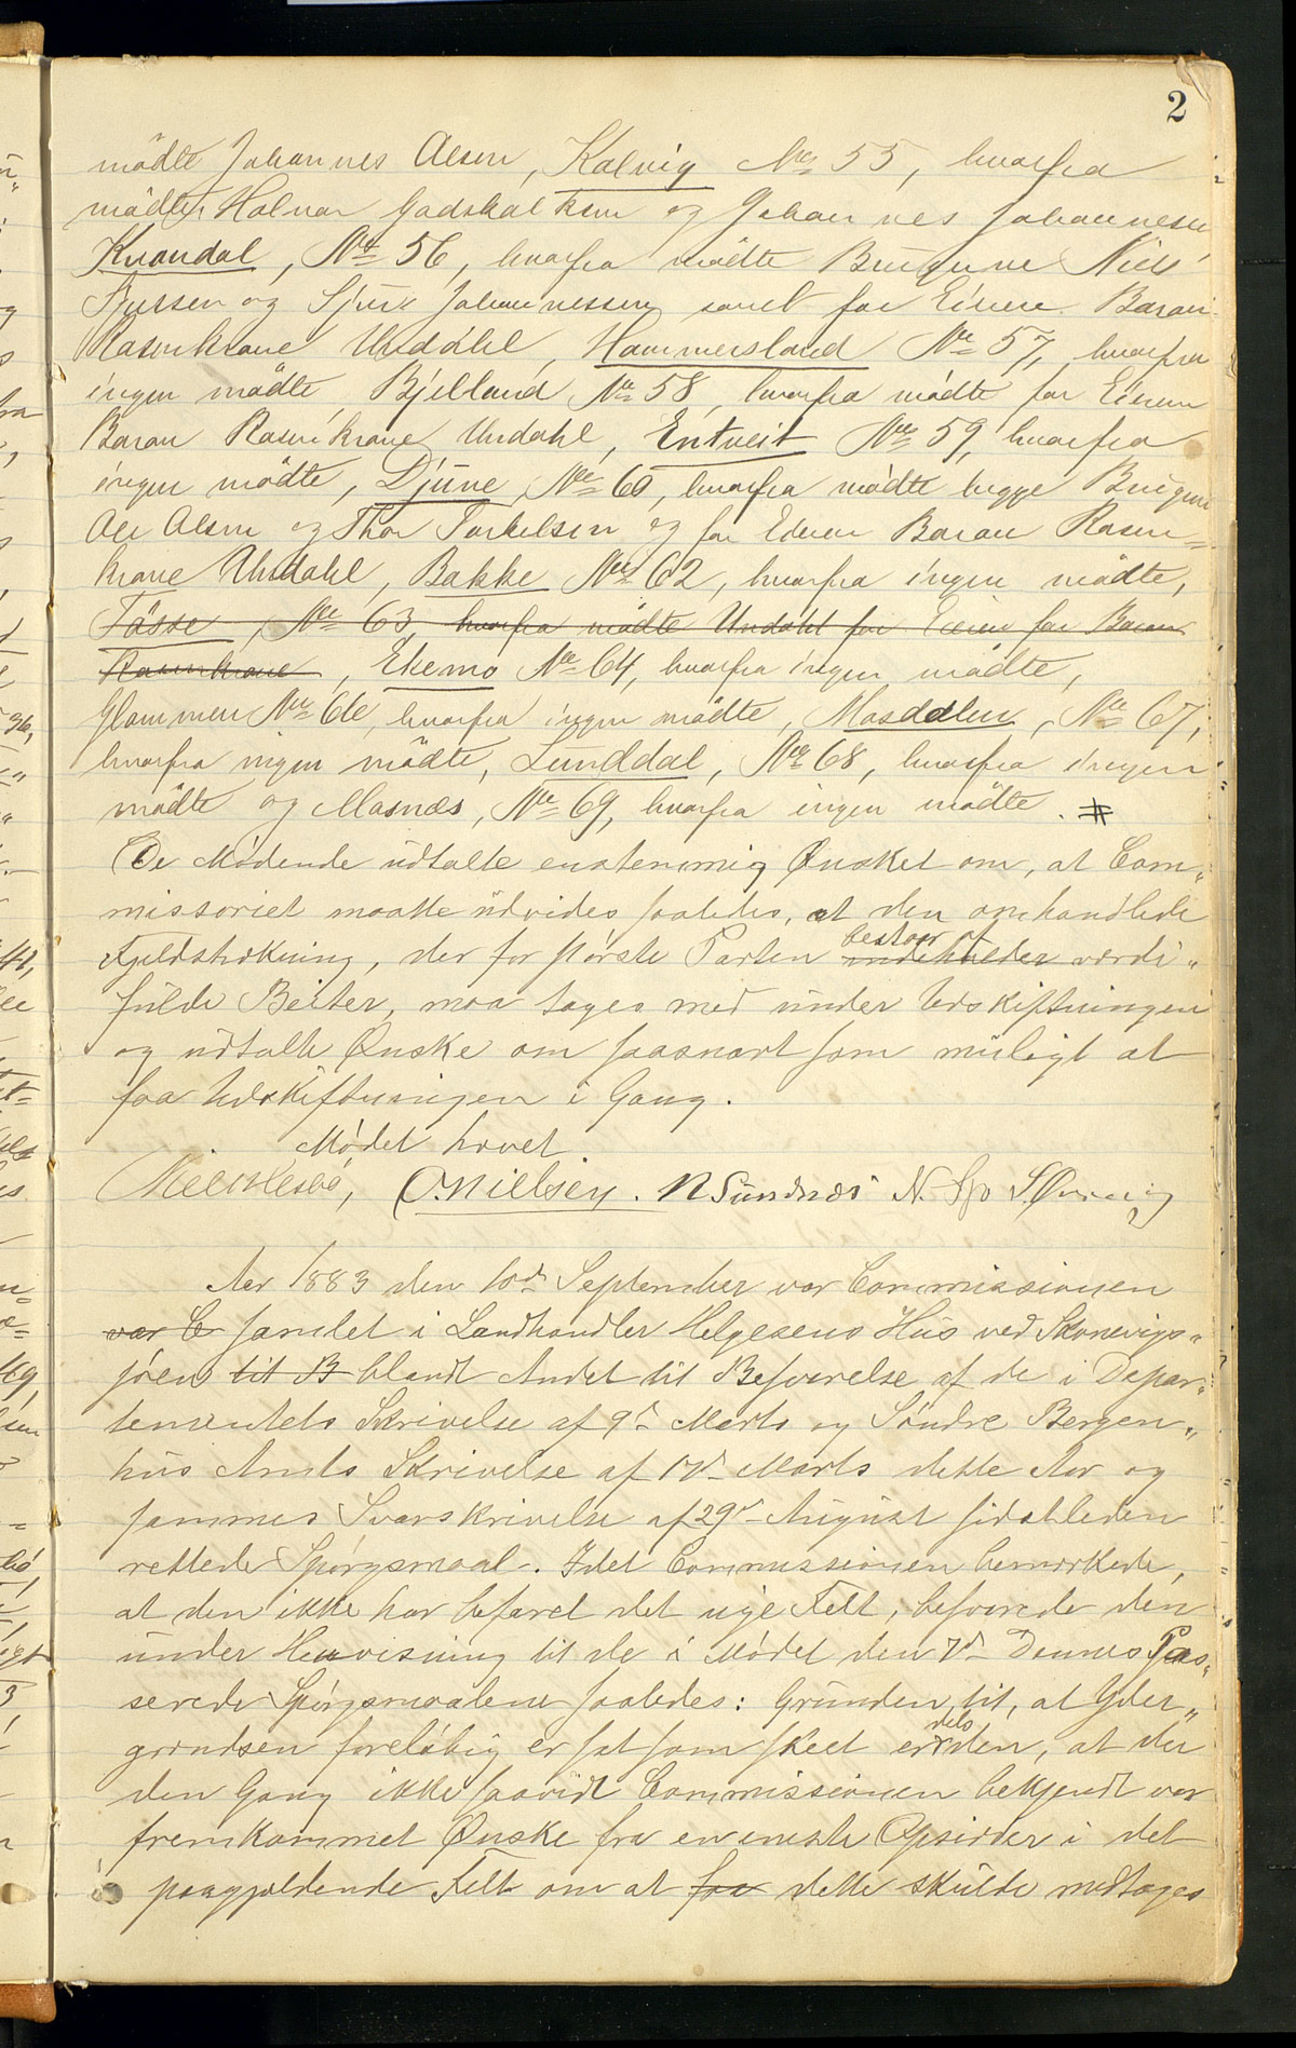 2
mødte Johannes Olsen, Kalvig No 55, hvorfra
mødte Halvor Godskalksen og Johannes Johannesen,
Kvandal, No 56, hvorfra mødte Brugerne Niels
og Sjur Johannessen samt for Eieren Baron
Rosenkrone Undahl, Hammersland No 57, hvorfra
ingen mødte, Bjelland No 58, hvorfra mødte for Eieren
Baron Rosenkrone Undahl, Entveit No 59, hvorfra
ingen mødte, Djuve, No 60, hvorfra mødte begge Brugere
Ole Olsen og Thor Torkelsen og for Eieren Baron Rosen=
krone Undahl, Bakke No 62, hvorfra ingen mødte,
Tøsse, No 63, hvorfra mødte Undahl for Eieren for Baron
Rosenkrone, Ekemo No 64, hvorfra ingen mødte,
Glommen No 66, hvorfra ingen mødte, Mosdalen, No 67,
hvorfra ingen mødte, Lunddal, No 68, hvorfra ingen
mødte og Mosnæs, No 69, hvorfra ingen mødte. #
De Mødende udtalte enstemmig Ønsket om, at Com„
missoriet maatte udvides saaledes, at den omhandlede
Fjeldstrækning, der for største Parten indeholder bestaar af værdi„
fulde Beiter, maa tages med under Udskiftningen
og udtalte Ønske om saasnart som muligt at
faa Udskiftningen i Gang.
Mødet hævet.
O. Nielsen. N Sundnæs N. Sjo S.
Aar 1883 den 10d September var Commissionen
var C samlet i Landhandler Helgesens Hus ved Skonevigs„
jøen til B blandt Andet til Besvarelse af de i Depar„
tementets Skrivelse af 9d Marts og Søndre Bergen„
hus Amts Skrivelse af 17d Marts dette Aar og
sammes Svarskrivelse af 29d August sidstleden
rettede Spørgsmaal. Idet Commissionen bemærkede,
at den ikke har befaret det nye Felt, besvarede den
under Henvisning til de i Mødet den 7d Dennes Pas„
serede Spørgsmaalene saaledes: Grunden til, at Yder„
grændsen foreløbig er sat som skeet er dels den, at der
den Gang ikke saavidt Commissionen bekjendt var
fremkommet Ønske fra en eneste Opsidder i det
paagjældende Felt om at faa dette skulde medtages